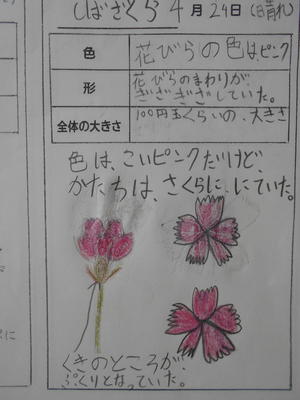 しばざくら 4月24日(晴れ)
色 花びらの色は、ピンク
形 花びらのまわりが、
ぎざぎざしていた。
全体の大きさ 100円玉くらいの、大きさ
色は、こいピンクだけど、
かたちは、さくらに、にていた。
くきのところが、
ぷくりとなっていた。